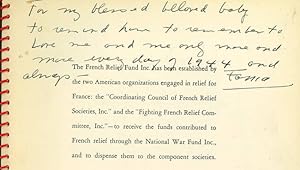 For my blessed beloved baby
to remind him to remember to
love me and me only more and
more every day of 1944 and
always —
The French Relief Fund Inc. has been established by
the two American organizations engaged in relief for
France: the "Coordinating Council of French Relief
Societies, Inc." and the "Fighting French Relief Com-
mittee, Inc."—to receive the funds contributed to
French relief through the National War Fund Inc.,
and to dispense them to the component societies.